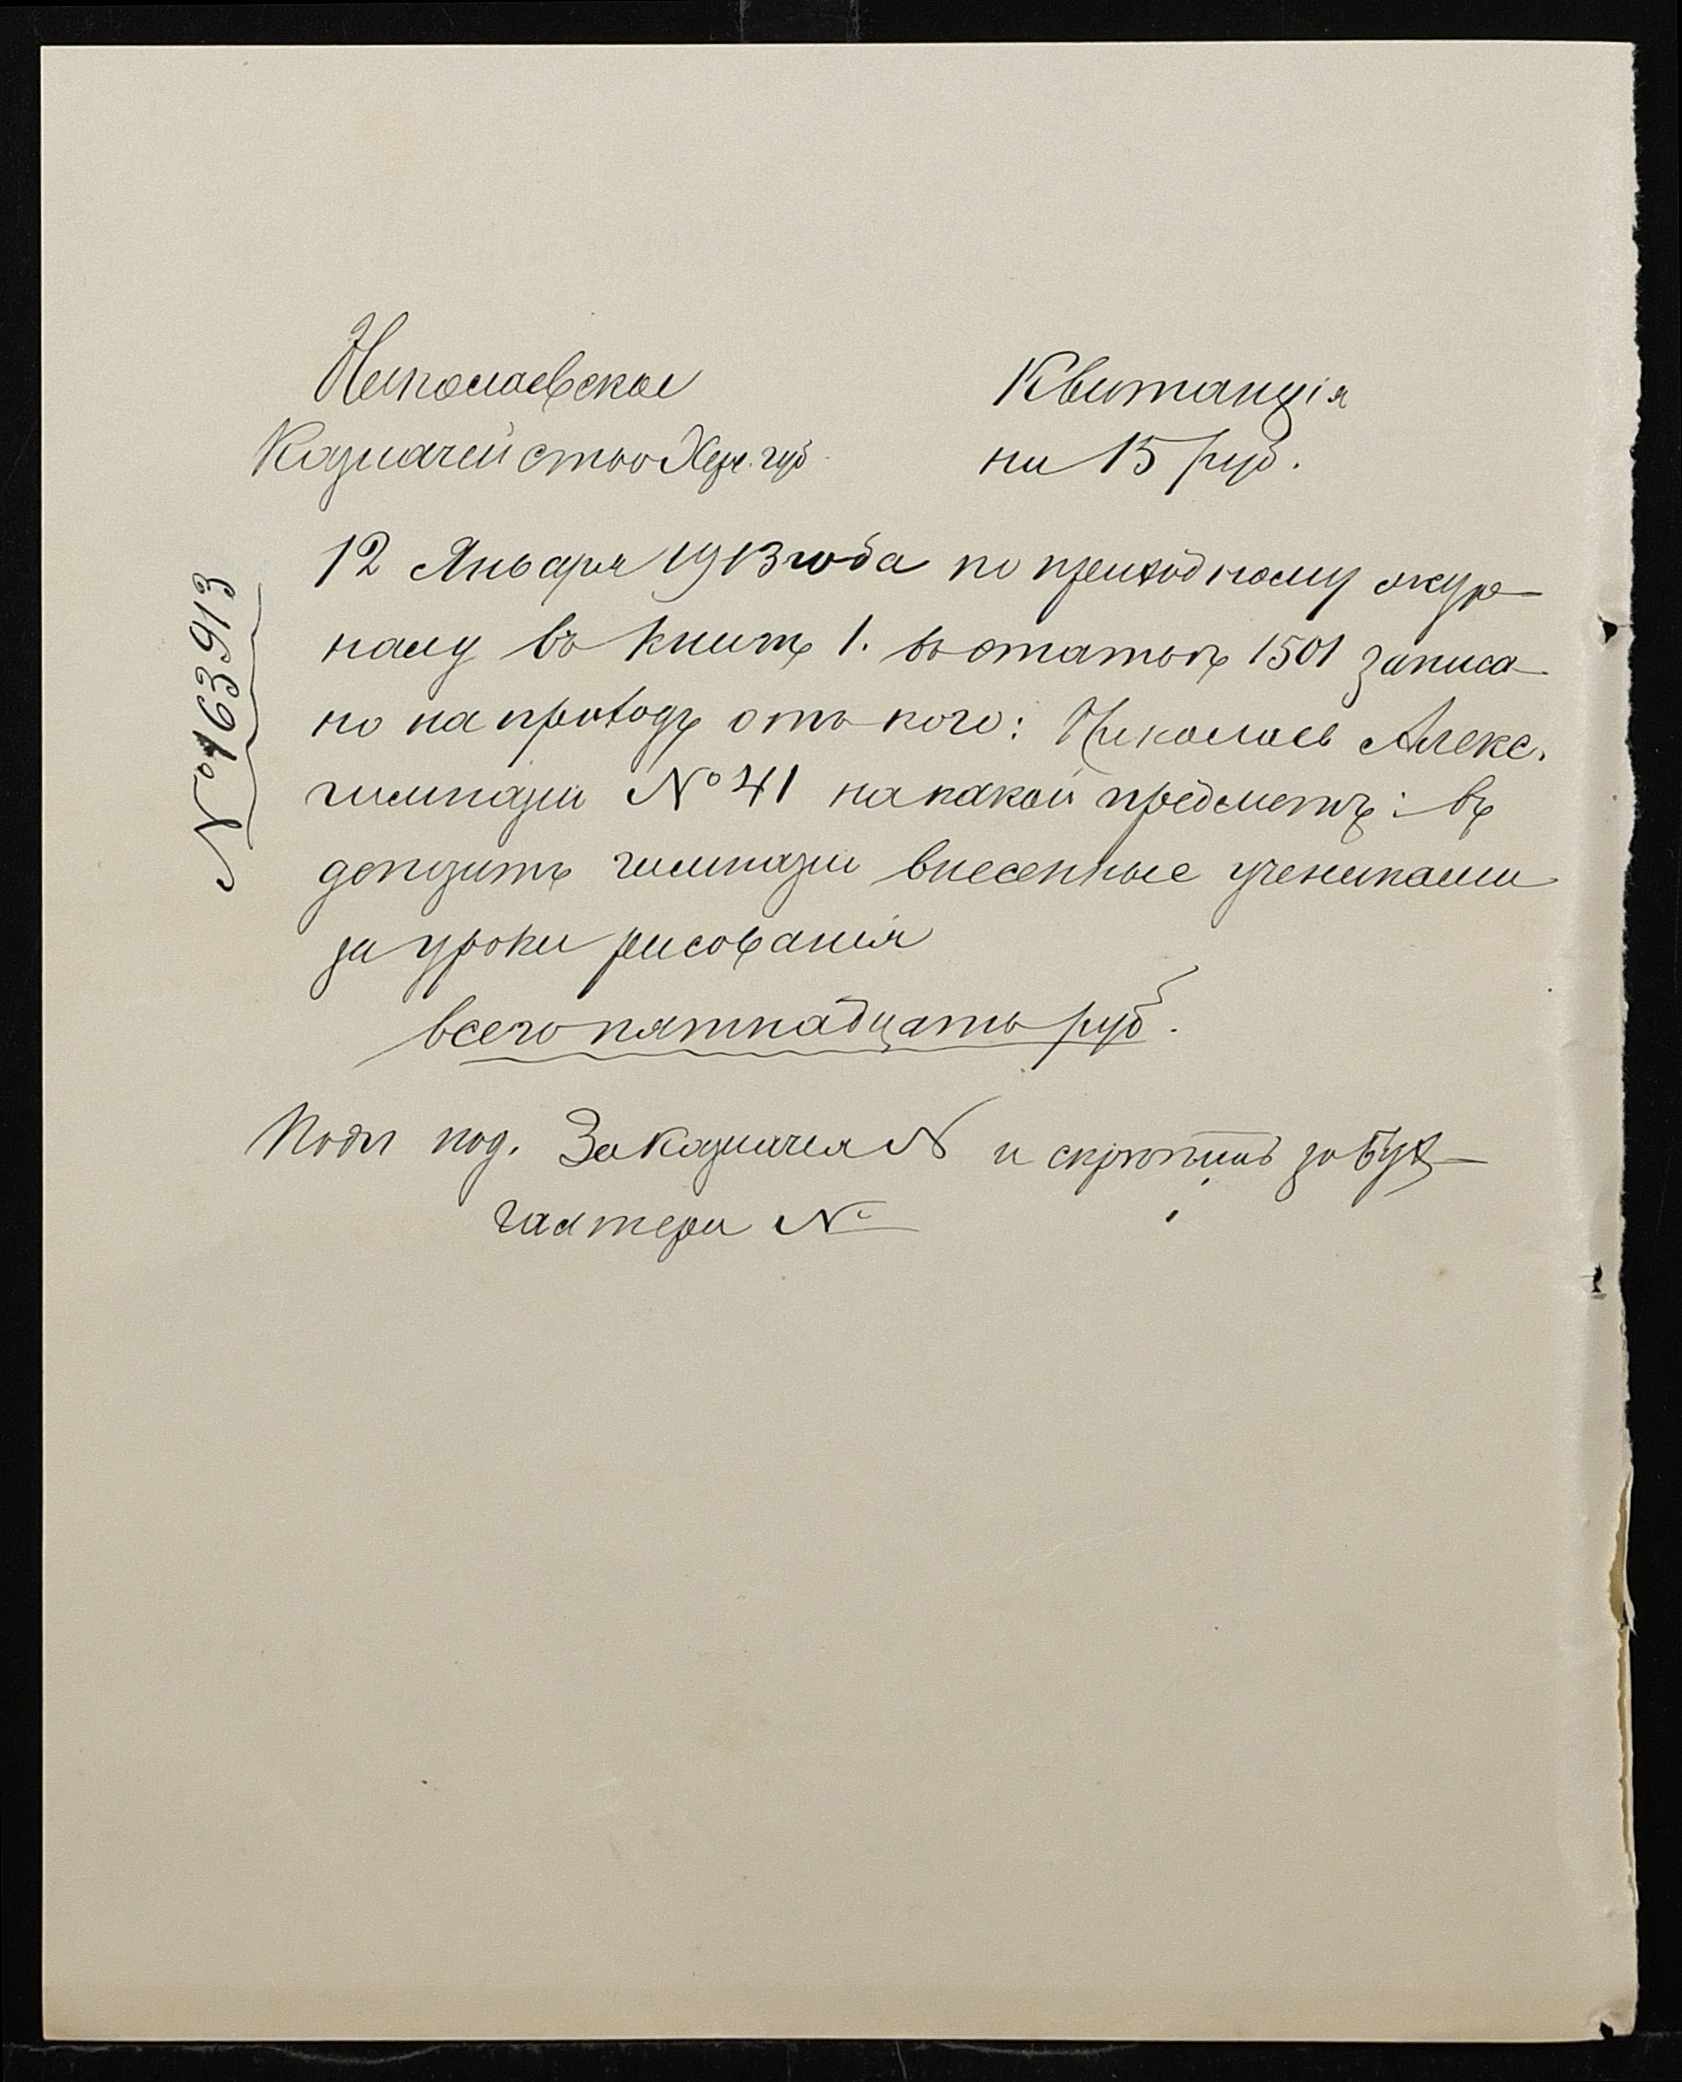 Николаевское
Казначейство Херс. губ
Квитанція
на 15 руб.
№ 163913
12 Января 1913 года по приходному журо
налу въ книгѣ 1. въ статьѣ 1501 записа
но на приходъ отъ кого: Николаев Алекс.
гимназіи № 41 на какой предметъ: въ
депозитъ гимназіи внесенные учениками
за уроки рисованія
всего пятнадцать руб.
Подл под. За Казначея N и скрѣпилъ за Бух
галтера N